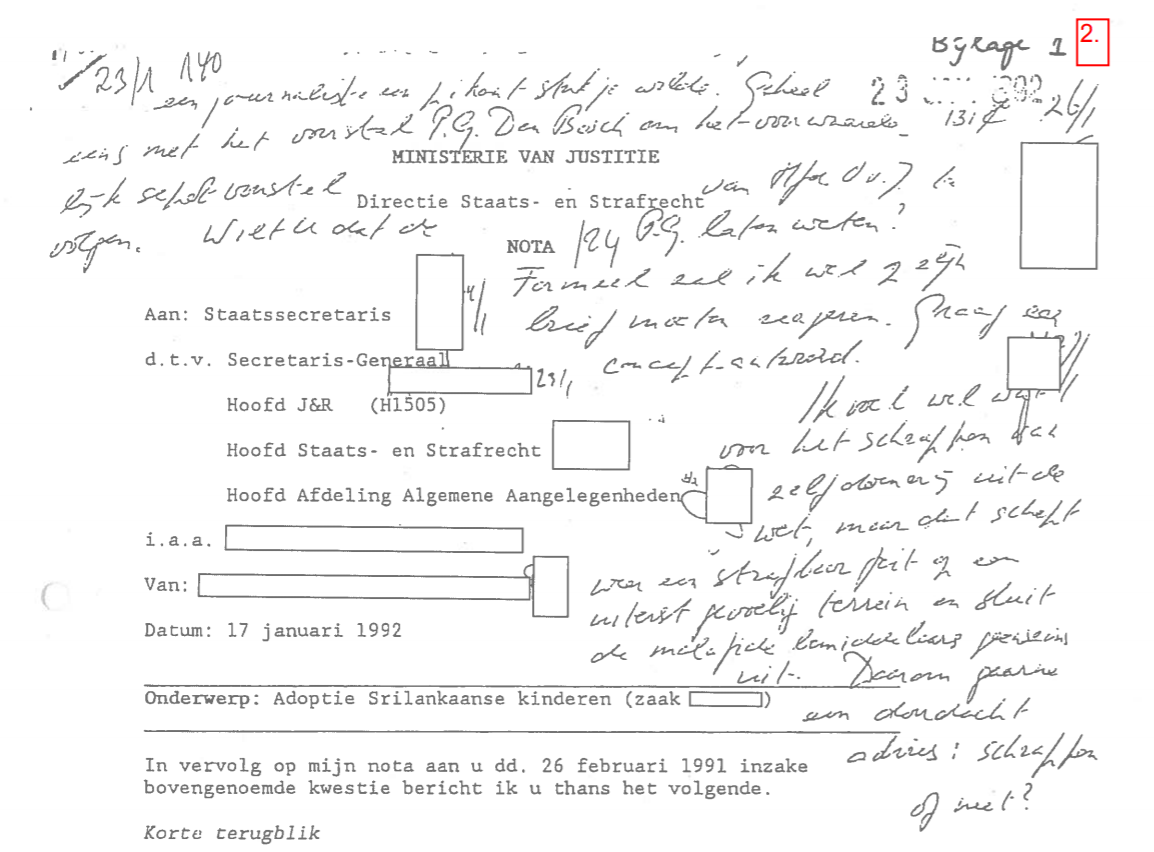 Bijlage 1
2.
23/1 140
een journaliste een pikant stukje wilde. Geheel 23 1992 26/1
eens met het voorstel P.G. Den Bosch om het voorwaarde-
MINISTERIE VAN JUSTITIE
lijk sepot voorstel van Hfd. O.v.J. te
Directie Staats- en Strafrecht
volgen. Wilt U dat de P.G. laten weten?
NOTA /24
Formeel zal ik wel 2 zijn
Aan: Staatssecretaris
brief moeten reageren. Graag een
d.t.v. Secretaris-Generaal 23/1
concept-antwoord.
Hoofd J&R (H1505)
Ik voel wel wat
Hoofd Staats- en Strafrecht
voor het schrappen van
Hoofd Afdeling Algemene Aangelegenheden
zelfdoenerij uit de
wet, maar dat schept
i.a.a.
weer een strafbaar feit op een
Van:
uiterst gevoelig terrein en sluit
Datum: 17 januari 1992
de malafide bemiddelaars geenszins
uit. Daarom gaarne
Onderwerp: Adoptie Srilankaanse kinderen (zaak )
een doordacht
advies: schrappen
In vervolg op mijn nota aan u dd. 26 februari 1991 inzake
bovengenoemde kwestie bericht ik u thans het volgende.
of niet?
Korte terugblik